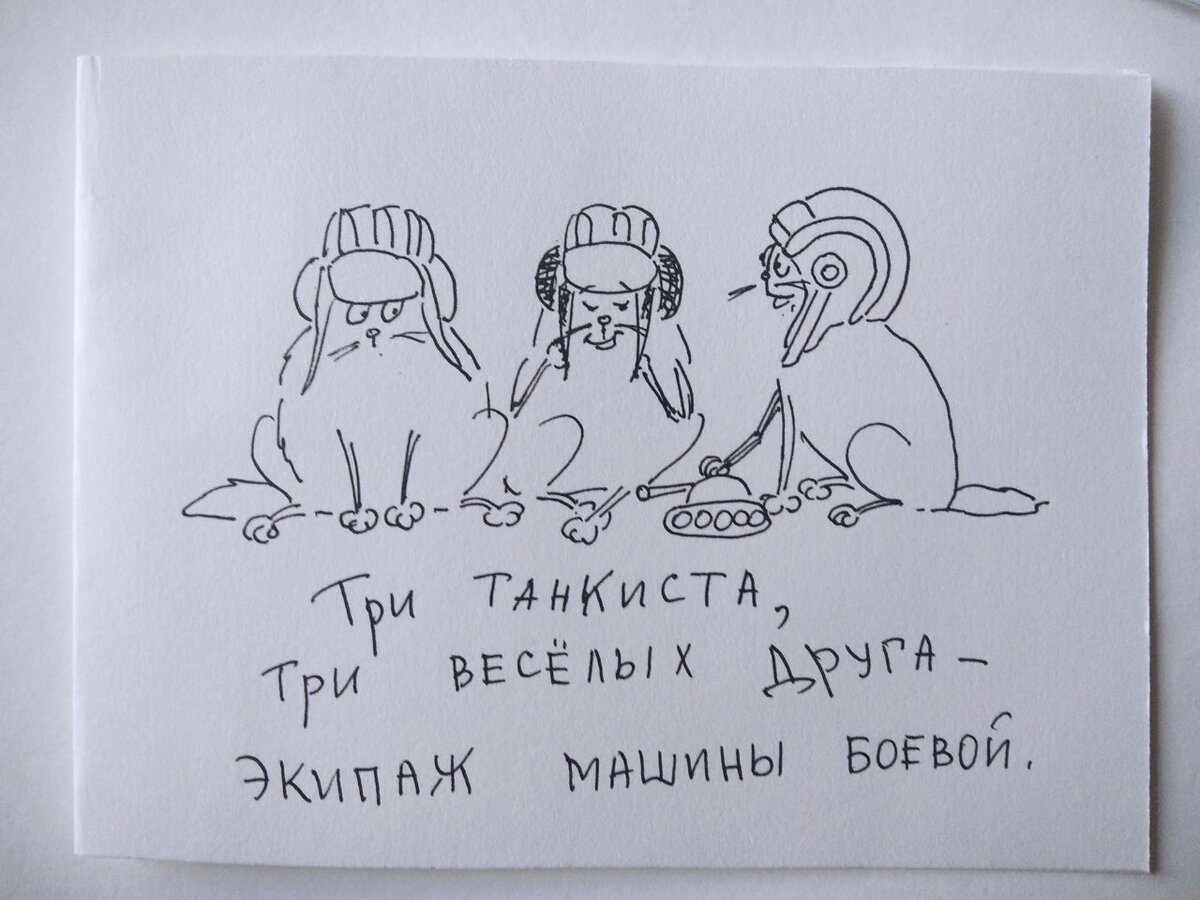 Три ТАНКИСТА,
Три ВЕСЁЛЫХ ДРУГА –
ЭКИПАЖ МАШИНЫ БОЕВОЙ.